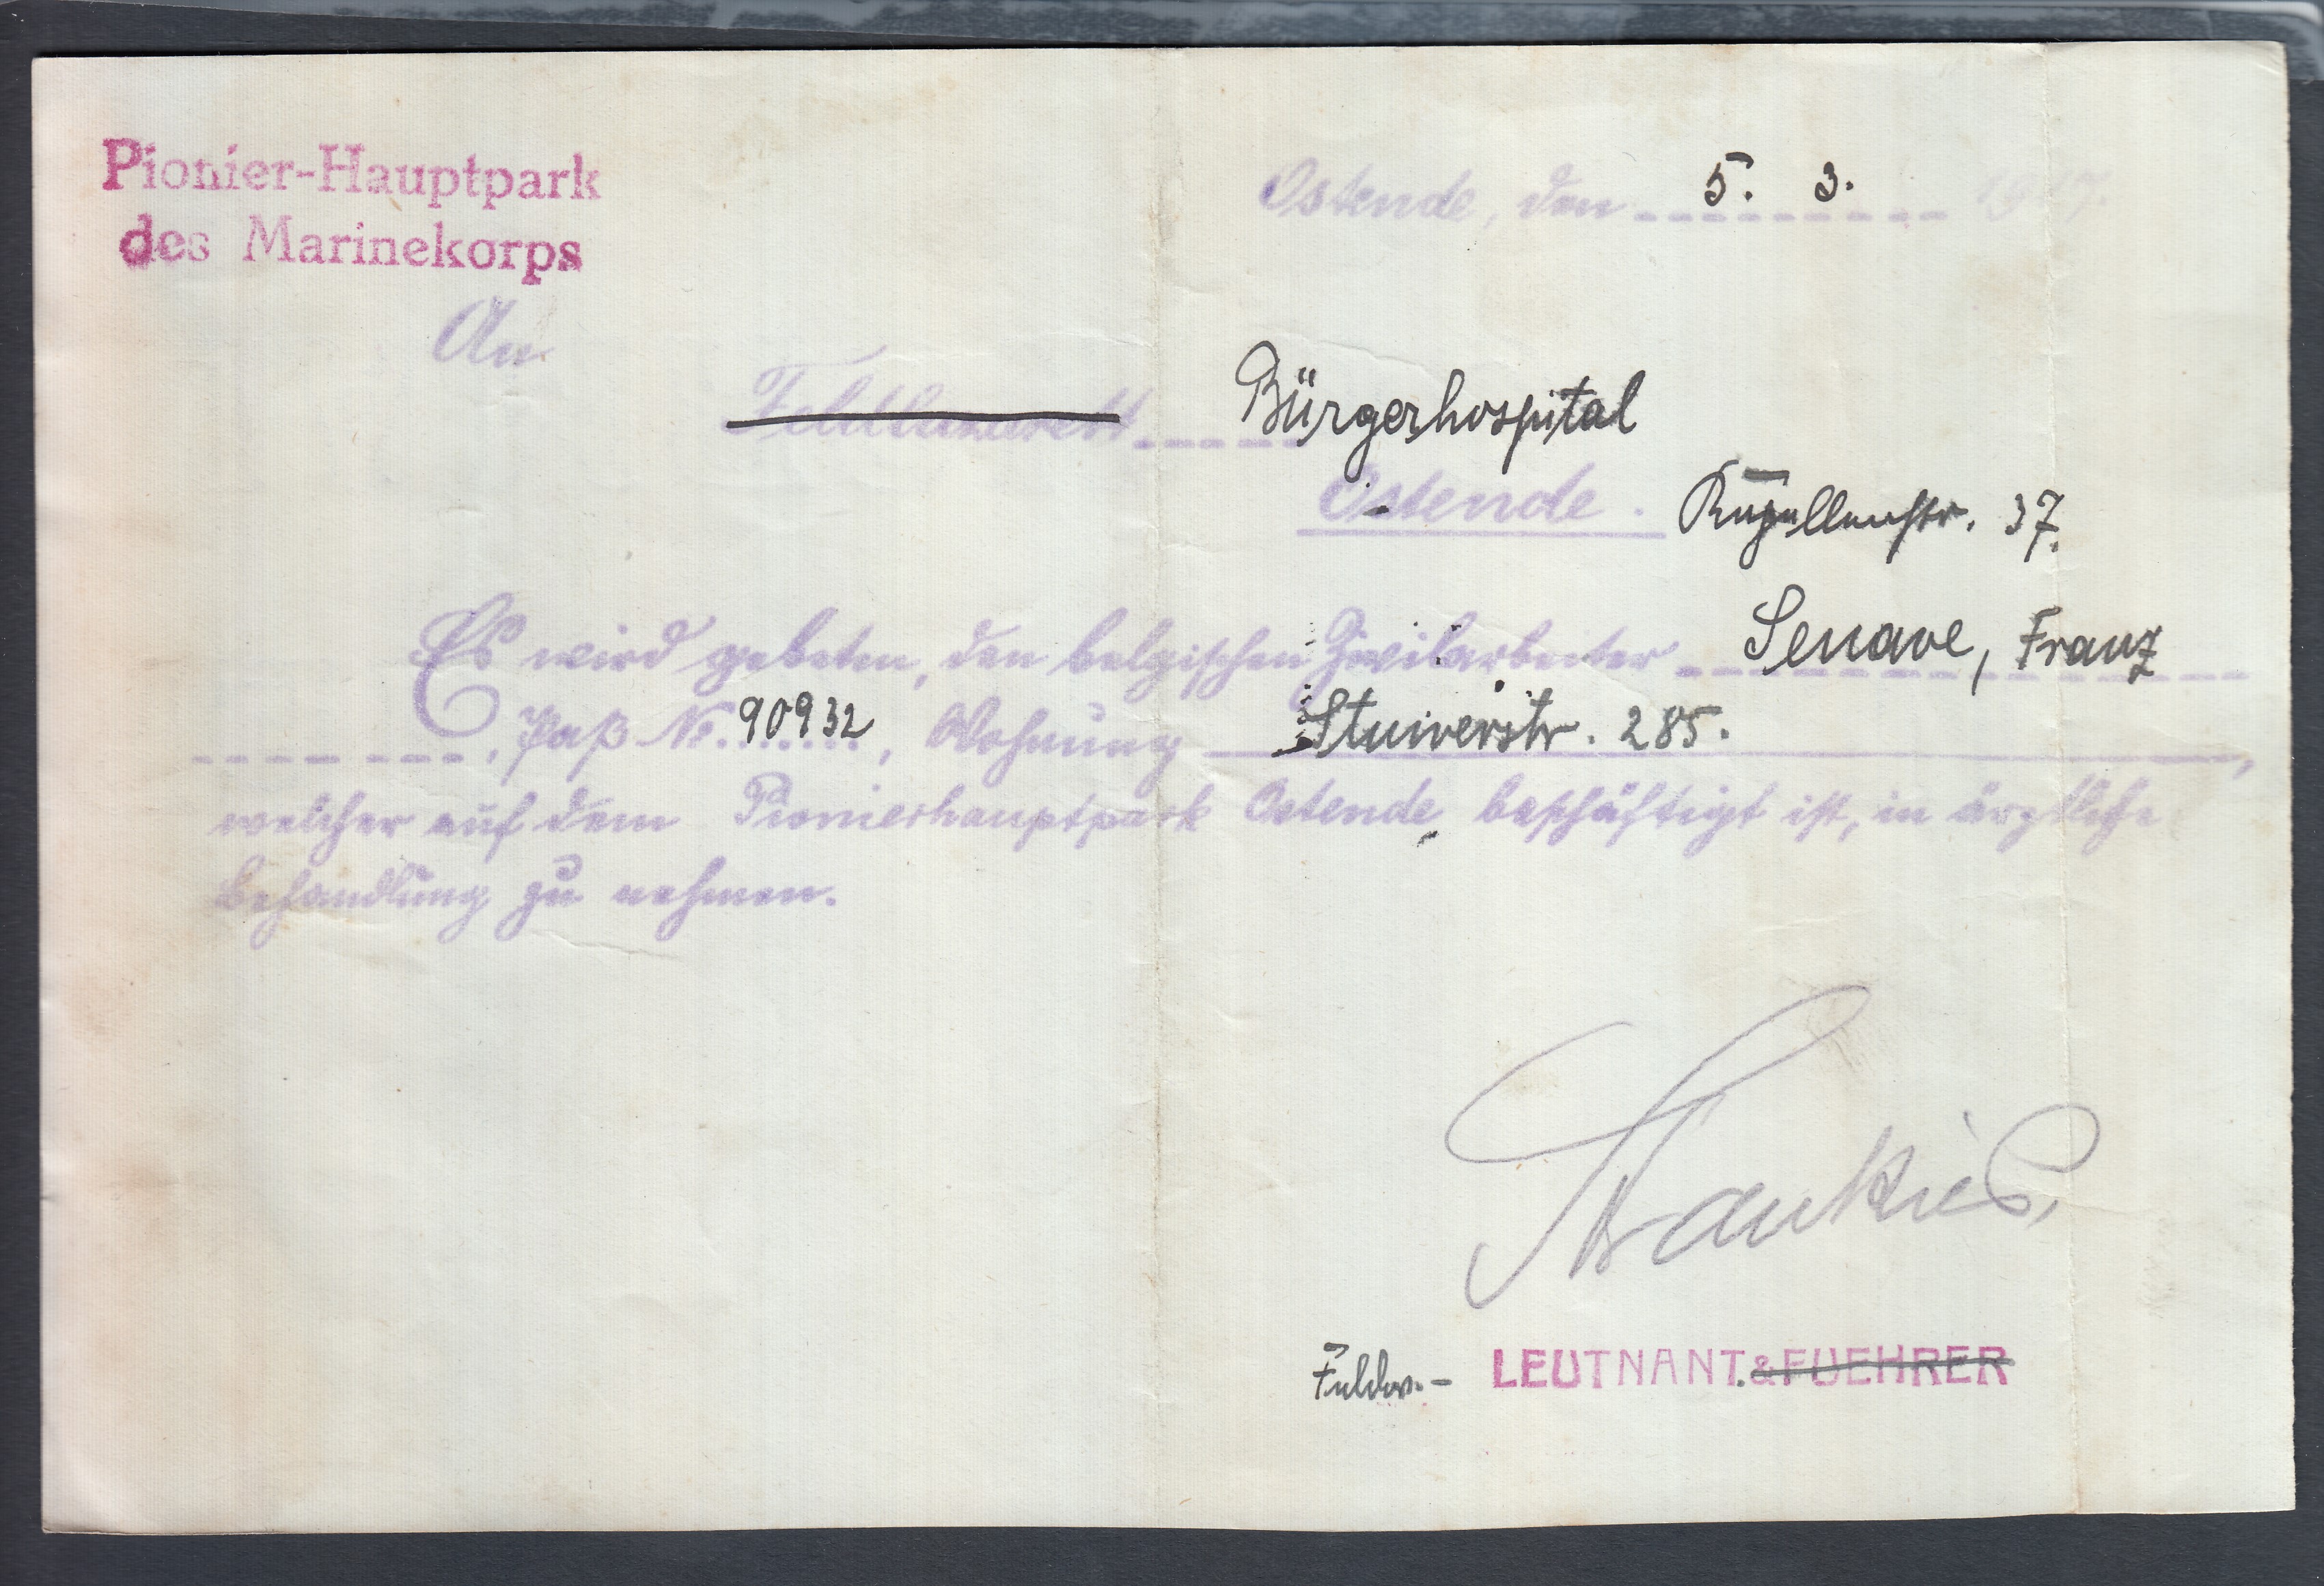 Pionier-Hauptpark
des Marinekorps
Ostende, den 5. 3. 1917.
An
Feldlazarett Bürgerhospital
Ostende. 37.
Es wird gebeten, den belgischen Zivilarbeiter Senave, Franz
, Paß Nr. 90932, Wohnung Stuiverstr. 285.,
welcher auf dem Pionierhauptpark Ostende beschäftigt ist, in ärztliche
Behandlung zu nehmen.
Feldw.- LEUTNANT.&FUEHRER